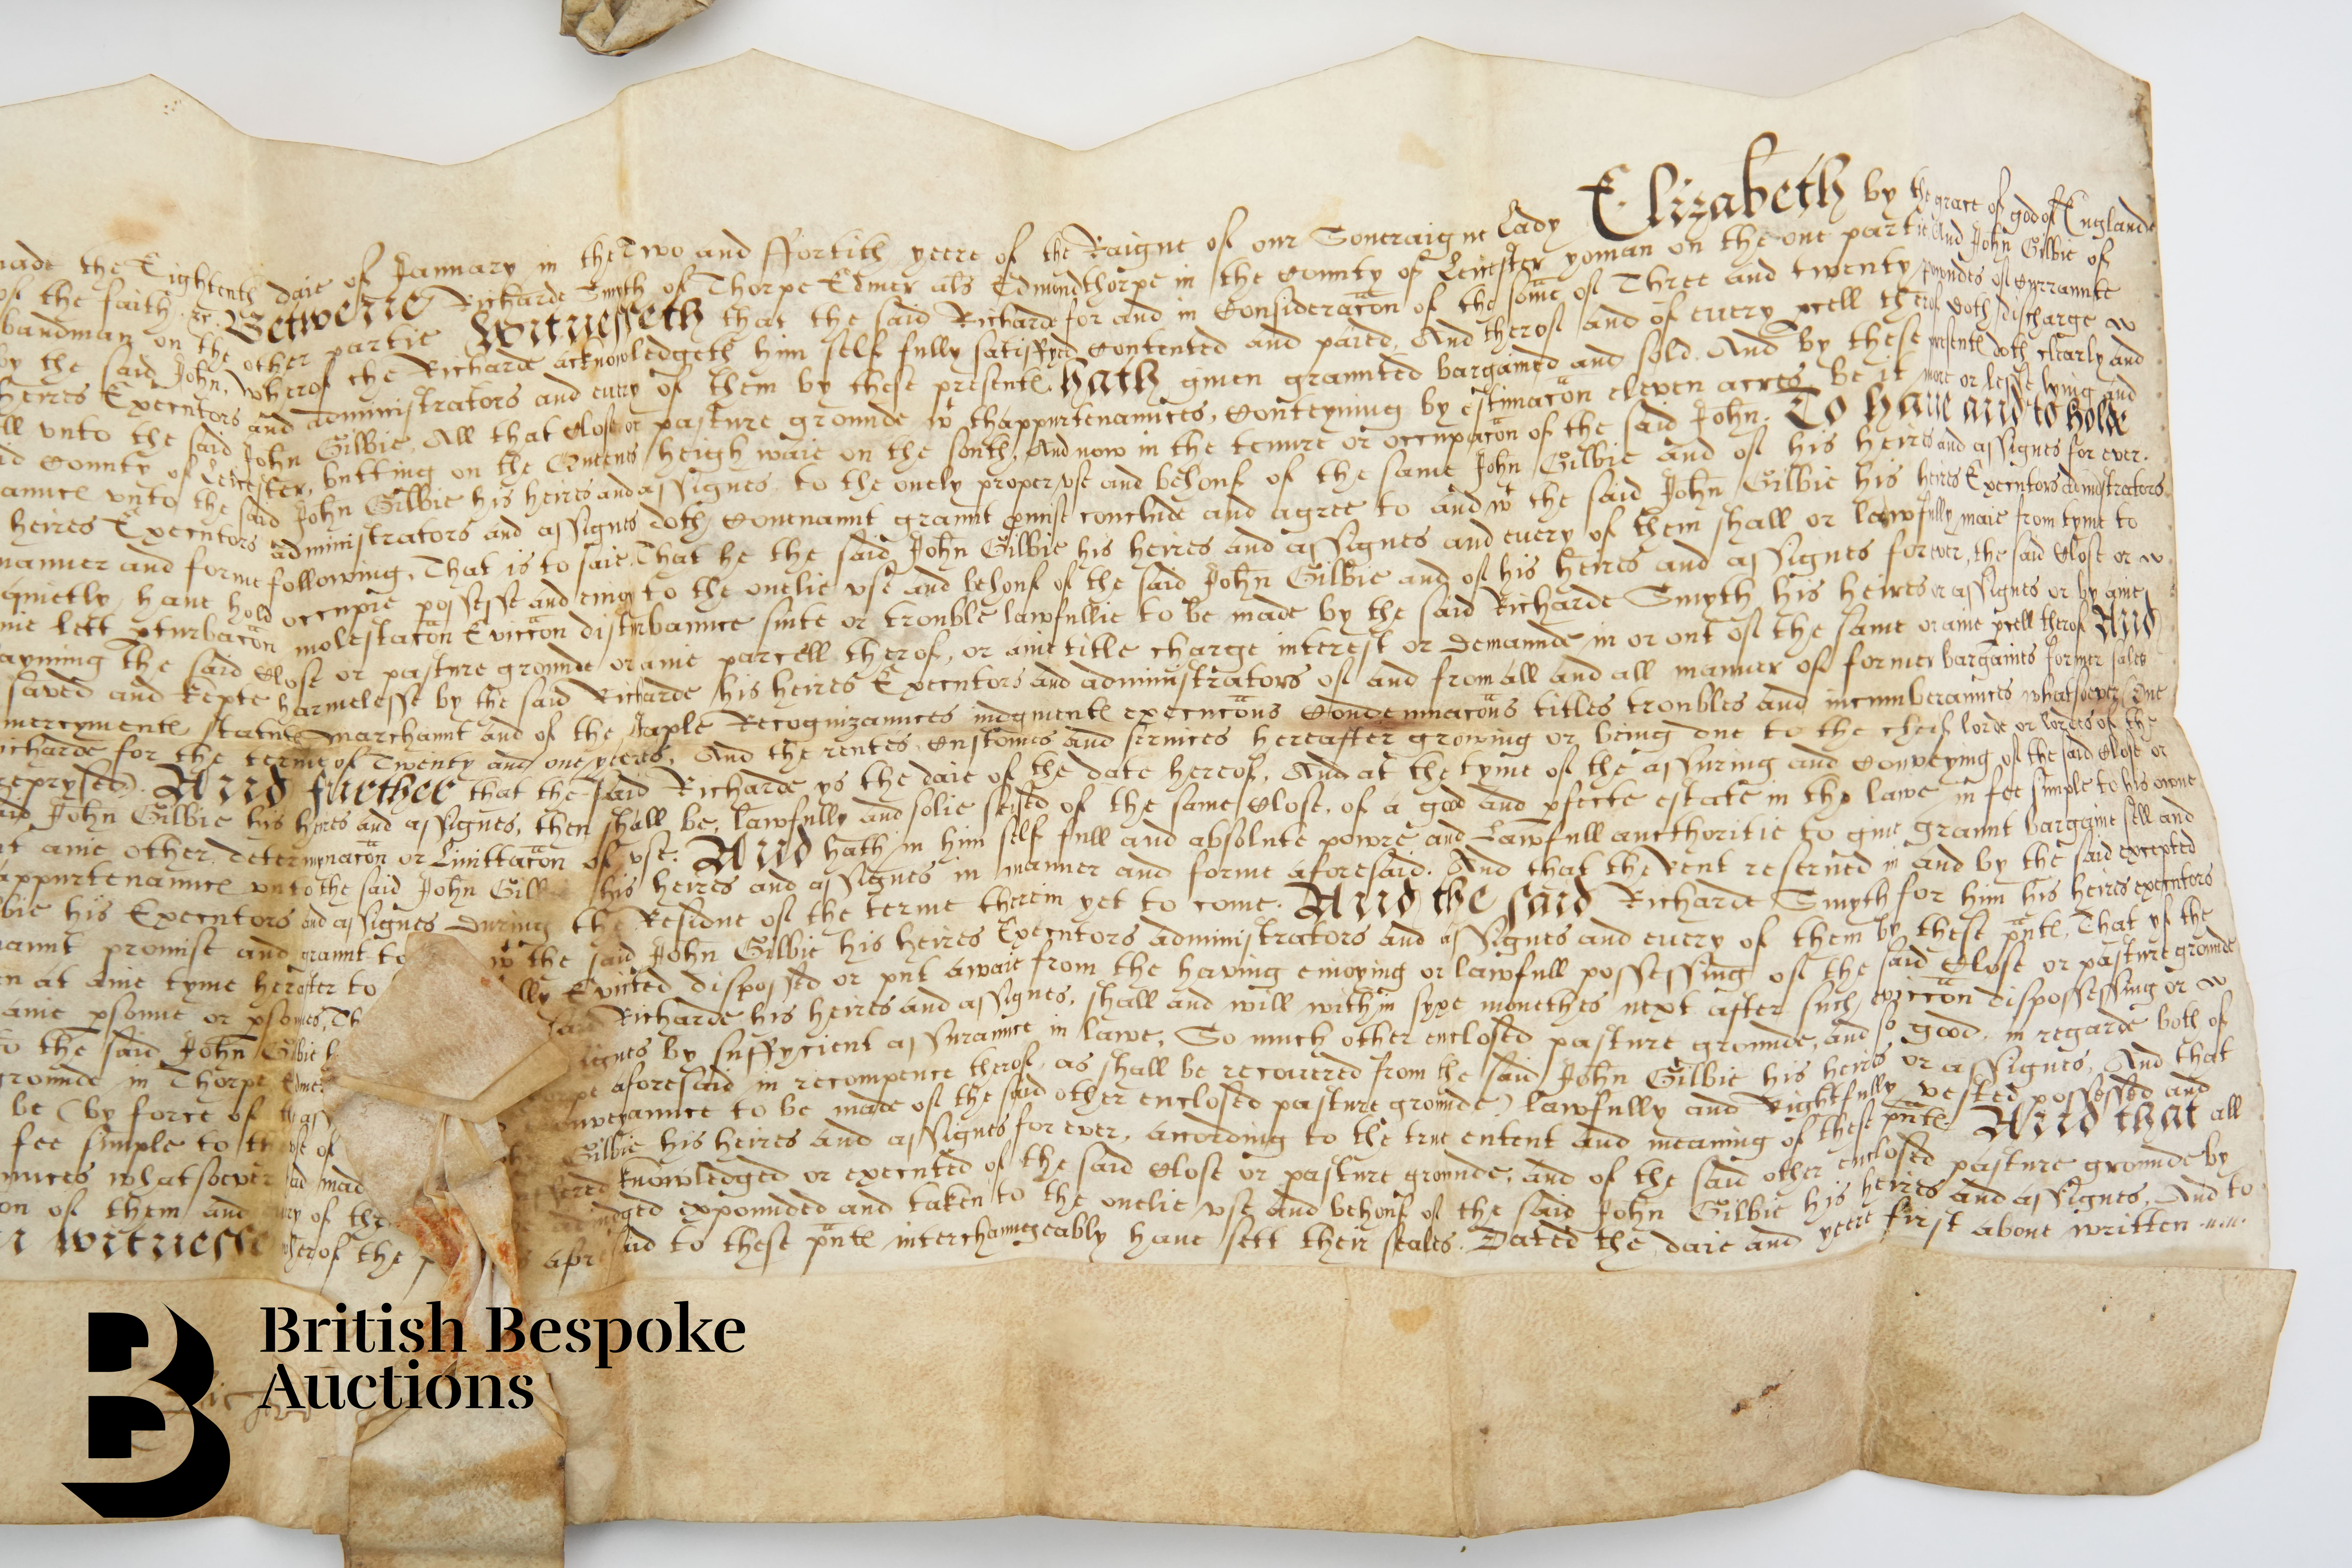 made the Eightenth daie of January in the Two and ffortith yeere of the Raigne of our Soueraigne Lady Elizabeth by the grace of god of Englande
of the faith &c. Betwene Richarde Smyth of Thorpe Edmer als Edmundthorpe in the County of Leicester yoman on the one partie And John Gilbie of
bandman on the other partie Witnesseth that the said Richarde for and in Consideracon of the some of Three and twenty powndes of Currannte
by the said John, wherof the Richarde acknowledgeth him self fully satisfyed Contented and paied, And therof and of euery pcell therof doth discharge
heires Executors and administrators and euery of them by these presente Hath giuen graunted bargained and sold. And by these presente doth clearly and
ll vnto the said John Gilbie, All that Close or pasture grounde wt thappurtenaunces, Conteyning by estimacon eleven acres be it more or lesse lying and
id County of Leicester, butting on the Queens heigh waie on the south, And now in the tenure or occupacon of the said John. To haue and to hold
aunce vnto the said John Gilbie his heires and assignes, to the onely proper vse and behouf of the same John Gilbie and of his heires and assignes for ever.
heires Executors administrators and assignes doth Couenannt graunt pmise conclude and agree to and wt the said John Gilbie his heires Executors administrators
manner and forme following, That is to saie, That he the said John Gilbie his heires and assignes and euery of them shall or lawfully maie from tyme to
quietly have hold occupie possesse and enioy to the onelie vse and behouf of the said John Gilbie and of his heires and assignes forever, the said Close or
nie lett pturbacon molestacon Eviccon disturbaunce suite or trouble lawfullie to be made by the said Richarde Smyth his heires or assignes or by anie
ayming the said Close or pasture grounde or anie parcell therof, or anie title charge interest or Demaunde in or out of the same or anie pcell therof And
saved and kepte harmelesse by the said Richarde his heires Executors and administrators of and from all and all manner of former bargaines former sales
mercymente statute marchannt and of the staple Recognizaunces iudgmente execucons Condemnacons titles troubles and incumberaunces whatsoever One
icharde for the terme of Twenty and one yeeres, And the rentes Customes and seruices hereafter growing or being due to the cheif lorde or lordes of the
reprysed). And further that the said Richarde ys the daie of the date hereof, And at the tyme of the assuring and Conveying of the said Close or
aid John Gilbie his heires and assignes, then shall be, lawfully and solie seised of the same Close, of a good and pfecte estate in the lawe in fee simple to his owne
t anie other determynacon or Limittacon of vse. And hath in him self full and absolute powre and Lawfull aucthoritie to giue graunt bargaine sell and
appurtenaunce vnto the said John Gilb his heires and assignes in manner and forme aforesaid. And that the rent reserued in and by the said excepted
bie his Executors and assignes During the Residue of the terme therein yet to come. And the said Richarde Smyth for him his heires executors
annt promise and graunt to wt the said John Gilbie his heires Executors administrators and assignes and euery of them by these pnte, That yf the
n at anie tyme herafter to lly Evicted disposed or put awaie from the having enioying or lawfull possessing of the said Close or pasture grounde
anie psonne or psones, Th said Richarde his heires and assignes, shall and will within syxe monethes next after such eviccon dispossessing or
o the said John Gilbie h signes by suffycient assuraunce in lawe, So much other enclosed pasture grounde, and so good, in regarde both of
grounde in Thorpe Edmer aforesaid in recompence therof, as shall be recouered from the said John Gilbie his heires or assignes, And that
be (by force of the ass onveyaunce to be made of the said other enclosed pasture grounde) lawfully and Rightfully vested possessed and
fee simple to th vse of Gilbie his heires and assignes for ever, according to the true entent and meaning of these pnte. And that all
unces whatsoever had mad knowledged or executed of the said Close or pasture grounde, and of the said other enclosed pasture grounde by
on of them and euery of the adiudged expounded and taken to the onelie vse and behouf of the said John Gilbie his heires and assignes. And to
n witnesse wherof the p afresaid to these pnte interchaungeably haue sett their seales. Dated the daie and yeere first aboue written
British Bespoke
Auctions